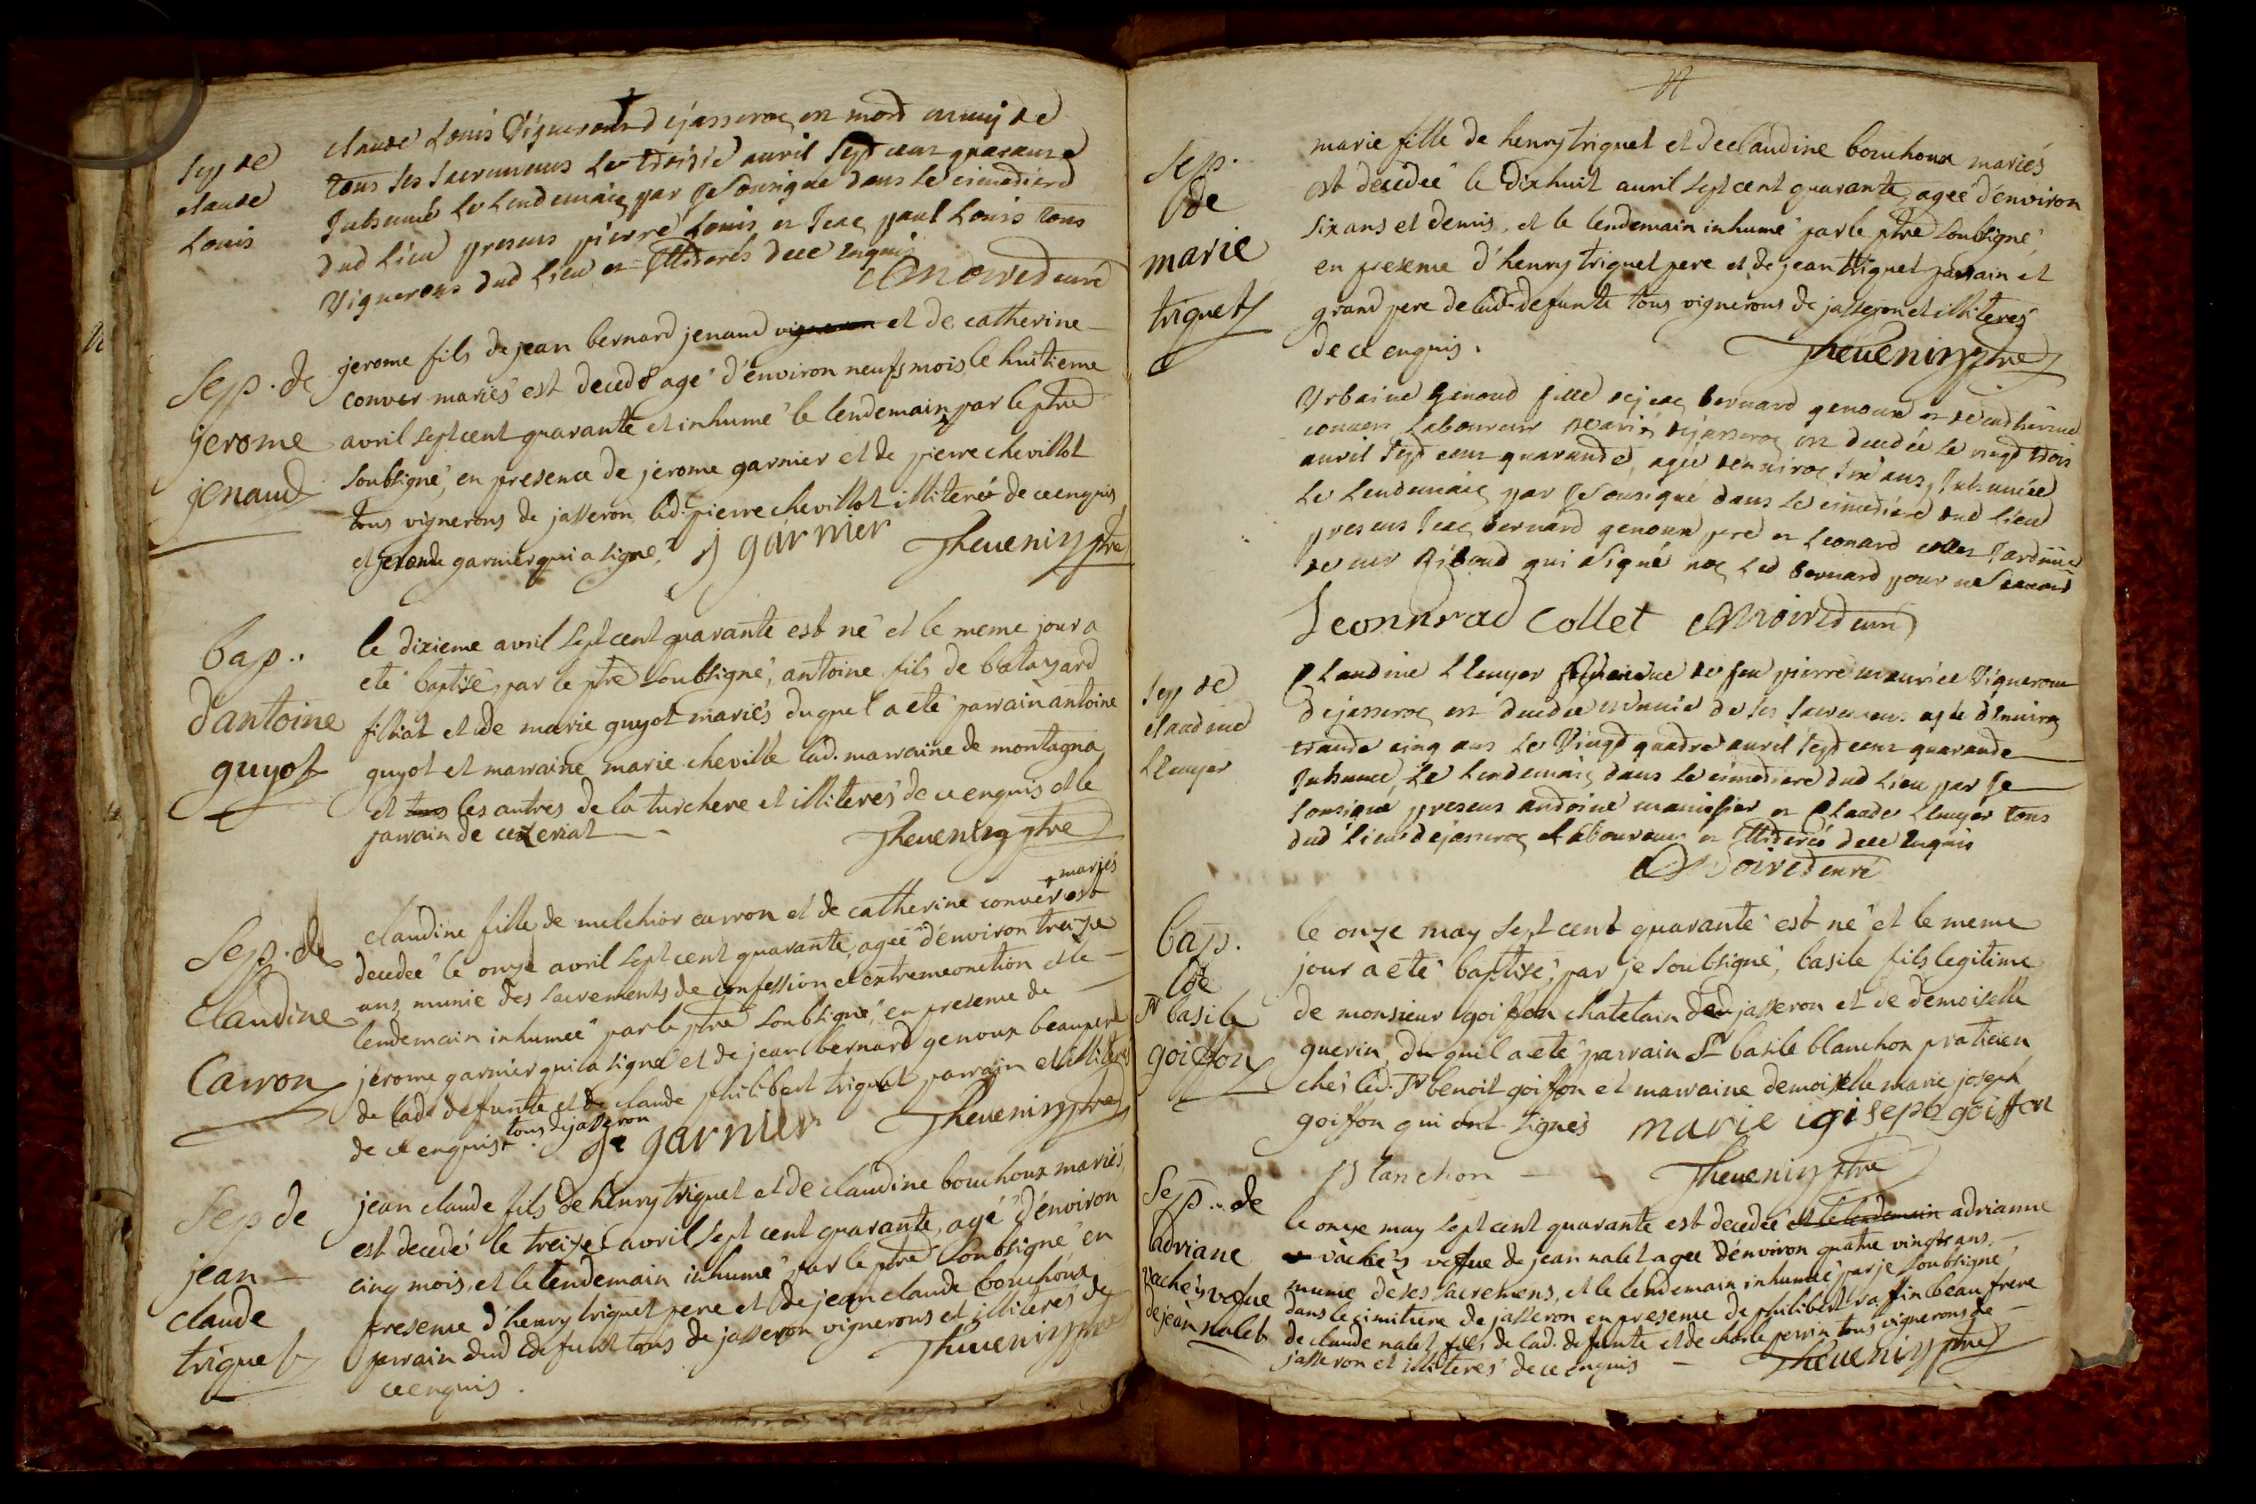 Sep de
claude
Louis
claude Louis Vigneron dejasseron est mord muny de
tous ses sacremens le troisie auril sept cent quarante
Inhumé le lendemain par Je sousigné dans le cimediere
dud lieu presens pierre Louis et Jean paul Louis tous
Vignerons dud lieu et illiderés dece enquis
curé
Sep. de
jerome
jenaud
jerome fils de jean bernard jenaud vigneron et de catherine
conver mariés est decedé agé d'environ neufs mois le huitieme
avril sept cent quarante et inhumé le lendemain par le ptre
soubsigné, en presence de jerome garnier et de pierre chevillot
tous vignerons de jasseron led. pierre chevillot illiteré de ce enquis
et jerome garnier qui a signé.
j garnier Thevenin ptre
bap.
d'antoine
guyot
le dixieme avril sept cent quarante est né et le meme jour a
eté baptisé par le ptre soubsigné, antoine fils de batazard
filliat et de marie guyot mariés duquel a eté parrain antoine
guyot et marraine marie cheville lad. marraine de montagna
et tous les autres de la turchere et illiterés de ce enquis et le
parrain de cezeriat
Thevenin ptre
Sep. de
Claudine
Carron
claudine fille de melchior carron et de catherine conver mariés est
decedée le onze avril sept cent quarante, agée d'environ treize
ans munie des sacrements de confession et extremeonction et le
lendemain inhumée par le ptre soubsigné, en presence de
jerome garnier qui a signé et de jean bernard genoux beaupere
de lad. defunte et de claude philibert triquet parrain et illiterés
de ce enquis tous de jasseron
j garnier Thevenin ptre
Sep de
jean
claude
triquet
jean claude fils de henry triquet et de claudine bouchoux mariés
est decedé le treize avril sept cent quarante, agé d'environ
cinq mois, et le lendemain inhumé par le ptre soubsigné en
presence d'henry triquet pere et de jean claude bouchoux
parrain dud defunt tous de jasseron vignerons et illiterés de
ce enquis.
Thevenin ptre
Sep.
de
marie
triquet
marie fille de henry triquet et de claudine bouchoux mariés
est decedée le dixhuit avril sept cent quarante, agée d'environ
six ans et demis, et le lendemain inhumé par le ptre soubsigné,
en presence d'henry triquet pere et de jean triquet parrain et
grand pere de lad. defunte tous vignerons de jasseron et illiterés
de ce enquis.
Thevenin ptre
Vrbaine Genoud fille dejean bernard genoux et de catherine
conuers laboureur mariés dejasseron est decedée le vingt trois
auril sept cent quarante, agée denuiron six ans, Inhumée
le lendemain par Je sousigné dans le cimediere dud lieu
presens Jean bernard genoux pere et Leonard collet Jardinie
de mr Riboud qui a signé non led bernard pour ne scauoir
Leonnrad Collet curé
Sep de
claudine
Claudine veuve de feu pierre maurice Vigneron
dejasseron est decedée munie de ses sacremens agée d'enuiron
trande cinq ans le Vingt quadre auril sept cent quarande
Inhumée le lendemain dans le cimediere dud lieu par Je
sousigné presens andoine et Claude tous
dud lieu dejasseron laboureurs et illiderés dece enquis
curé
bap.
de
Sr basile
goiffon
le onze may sept cent quarante est né et le meme
jour a eté baptisé, par je soubsigné, basile fils legitime
de monsieur goiffon chatelain de jasseron et de demoiselle
guerin, du quel a eté parrain Sr basile blanchon praticien
ches led. Sr benoit goiffon et marraine demoiselle marie joseph
goiffon qui ont signés marie igisepz goiffon
Blanchon Thevenin ptre
Sep. de
adriane
vachéy vefue
de jean nalet
le onze may sept cent quarante est decedée et le lendemain adrianne
vachéy vefue de jean nalet agée d'environ quatre vingts ans
munie de ses sacremens, et le lendemain inhumée par je soubsigné
dans le cimitiere de jasseron en presence de philibert raffin beau frere
de claude nalet fils de lad. defunte et de charle perrin tous vignerons de
jasseron et illiterés de ce enquis
Thevenin ptre